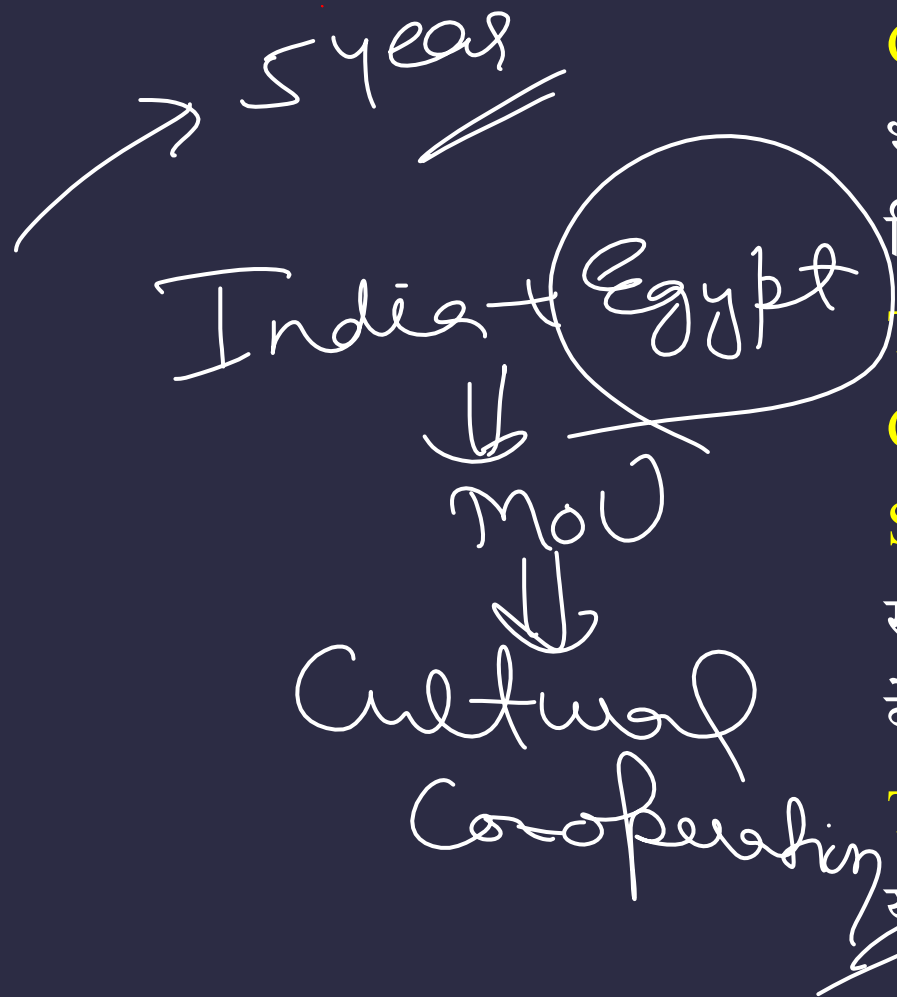 5 year
India + Egypt
MoU
Cultural
Co-operation